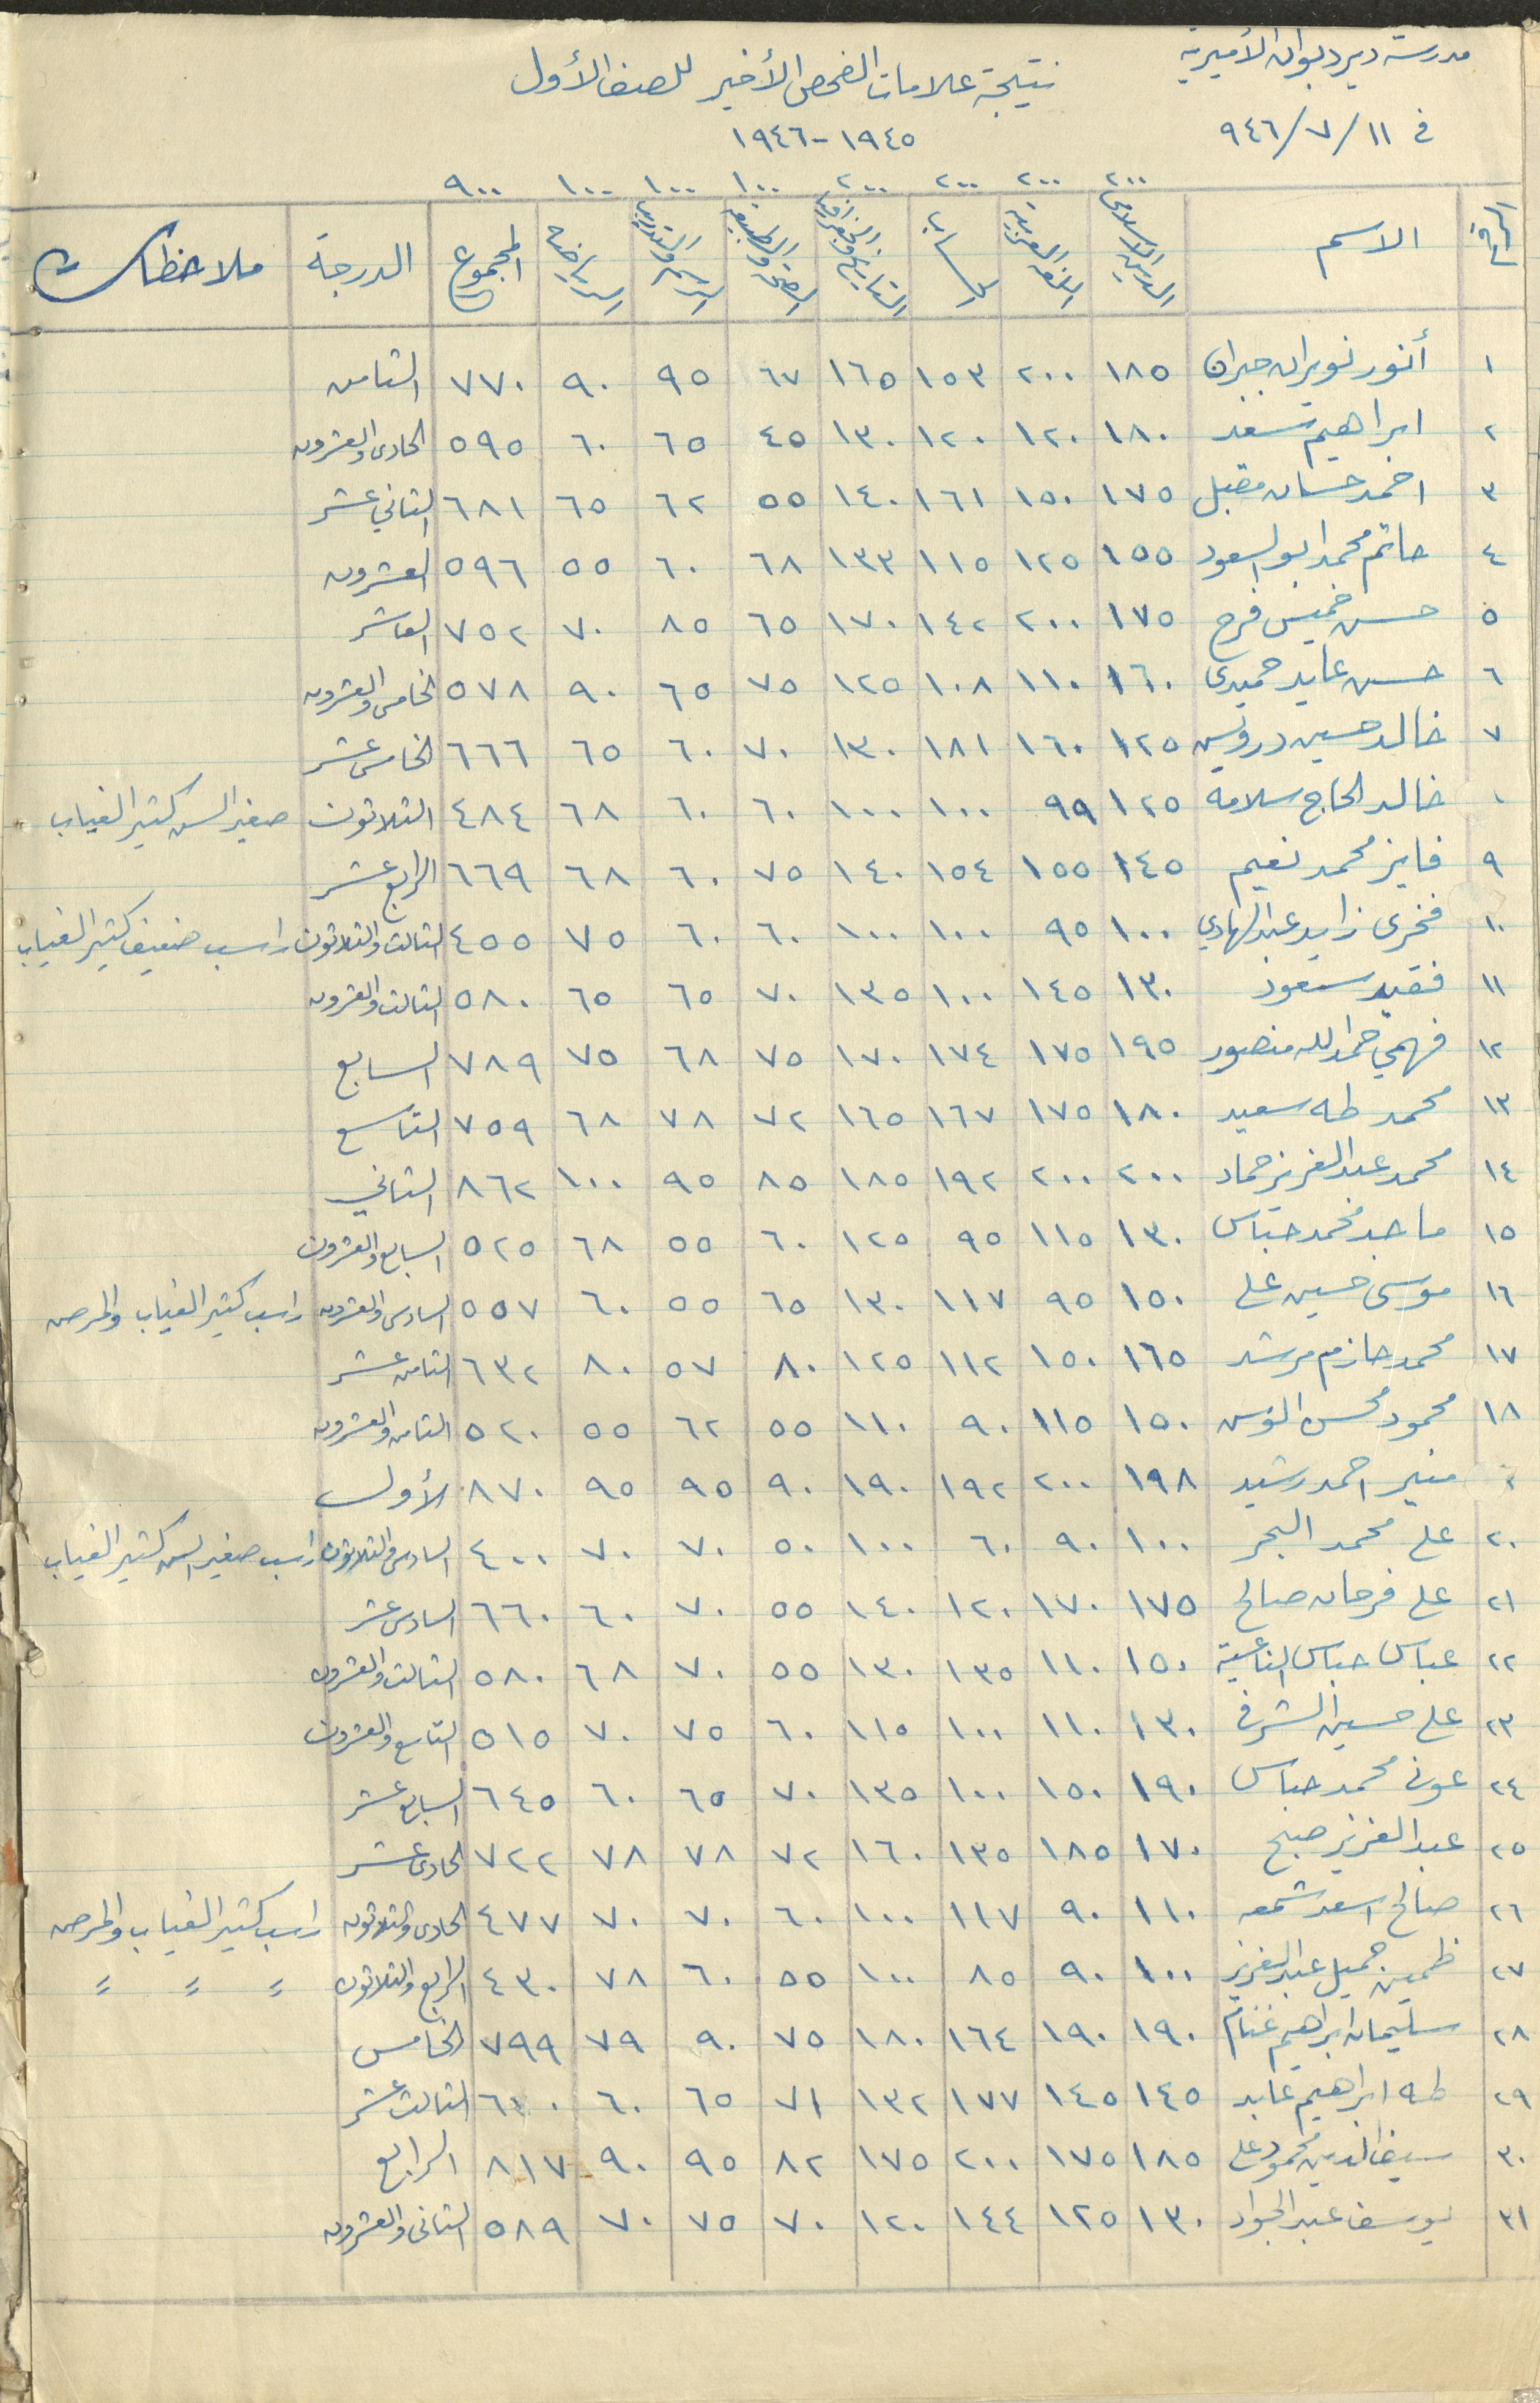 مدرسة ديرديوان الأميرية
نتيجة علامات الفحص الأخير للصف الأول
في ١١/٧/٩٤٦
١٩٤٥-١٩٤٦
٢٠٠ ٢٠٠ ٢٠٠ ٢٠٠ ١٠٠ ١٠٠ ١٠٠ ٩٠٠
الاسم الدين الاسلامي اللغة العربية حساب التاريخ والجغرافيا الرسم الرياضة المجموع الدرجة ملاحظات
١ أنور نويران جبران ١٨٥ ٢٠٠ ١٥٣ ١٦٥ ٦٧ ٩٥ ٩٠ ٧٧٠ الثامن
٢ ابراهيم سعد ١٨٠ ١٢٠ ١٢٠ ١٣٠ ٤٥ ٦٥ ٦٠ ٥٩٥ الحادي والعشرون
٣ احمد حسان مقبل ١٧٥ ١٥٠ ١٦١ ١٤٠ ٥٥ ٦٢ ٦٥ ٦٨١ الثاني عشر
٤ حاتم محمد ابو السعود ١٥٥ ١٢٥ ١١٥ ١٣٣ ٦٨ ٦٠ ٥٥ ٥٩٦ العشرون
٥ حسن خميس فرج ١٧٥ ٢٠٠ ١٤٢ ١٧٠ ٦٥ ٨٥ ٧٠ ٧٥٢ العاشر
٦ حسن عايد حميدي ١٦٠ ١١٠ ١٠٨ ١٢٥ ٧٥ ٦٥ ٩٠ ٥٧٨ الخامس والعشرون
٧ خالد حسين درويس ١٢٥ ١٦٠ ١٨١ ١٣٠ ٧٠ ٦٠ ٦٥ ٦٦٦ الخامس عشر
خالد الحاج سلامه ١٢٥ ٩٩ ١٠٠ ١٠٠ ٦٠ ٦٠ ٦٨ ٤٨٤ الثلاثون صغير السن كثير الغياب
٩ فايز محمد نعيم ١٤٥ ١٥٥ ١٥٤ ١٤٠ ٧٥ ٦٠ ٦٨ ٦٦٩ الرابع عشر
١٠ فخري زايد عبد الهادي ١٠٠ ٩٥ ١٠٠ ١٠٠ ٦٠ ٦٠ ٧٥ ٤٥٥ الثالث والثلاثون راسب ضعيف كثير الغياب
١١ فقيد سعود ١٣٠ ١٤٥ ١٠٠ ١٣٥ ٧٠ ٦٥ ٦٥ ٥٨٠ الثالث والعشرون
١٢ فهمي حمد الله منصور ١٩٥ ١٧٥ ١٧٤ ١٧٠ ٧٥ ٦٨ ٧٥ ٧٨٩ السابع
١٣ محمد طه سعيد ١٨٠ ١٧٥ ١٦٧ ١٦٥ ٧٢ ٧٨ ٦٨ ٧٥٩ التاسع
١٤ محمد عبد العزيز حماد ٢٠٠ ٢٠٠ ١٩٢ ١٨٥ ٨٥ ٩٥ ١٠٠ ٨٦٢ الثاني
١٥ ماجد محمد حباس ١٣٠ ١١٥ ٩٥ ١٢٥ ٦٠ ٥٥ ٦٨ ٥٢٥ السابع والعشرون
١٦ موسى حسين علي ١٥٠ ٩٥ ١١٧ ١٣٠ ٦٥ ٥٥ ٦٠ ٥٥٧ السادس والعشرون راسب كثير الغياب والمرض
١٧ محمد حازم مرشد ١٦٥ ١٥٠ ١١٢ ١٢٥ ٨٠ ٥٧ ٨٠ ٦٣٢ الثامن عشر
١٨ محمود محسن ١٥٠ ١١٥ ٩٠ ١١٠ ٥٥ ٦٢ ٥٥ ٥٢٠ الثامن والعشرون
منير احمد رشيد ١٩٨ ٢٠٠ ١٩٢ ١٩٠ ٩٠ ٩٥ ٩٥ ٨٧٠ الأول
٢٠ علي محمد البحر ١٠٠ ٩٠ ٦٠ ١٠٠ ٥٠ ٧٠ ٧٠ ٤٠٠ السادس والثلاثون راسب صغير السن كثير الغياب
٢١ علي فرحان صالح ١٧٥ ١٧٠ ١٢٠ ١٤٠ ٥٥ ٧٠ ٦٠ ٦٦٠ السادس عشر
٢٢ عباس حباس ١٥٠ ١١٠ ١٣٥ ١٣٠ ٥٥ ٧٠ ٦٨ ٥٨٠ الثالث والعشرون
٢٣ علي حسين الشرفي ١٣٠ ١١٠ ١٠٠ ١١٥ ٦٠ ٧٥ ٧٠ ٥١٥ التاسع والعشرون
٢٤ عوني محمد حباس ١٩٠ ١٥٠ ١٠٠ ١٣٥ ٧٠ ٦٥ ٦٠ ٦٤٥ السابع عشر
٢٥ عبد العزيز صبح ١٧٠ ١٨٥ ١٣٥ ١٦٠ ٧٢ ٧٨ ٧٨ ٧٢٢ الحادي عشر
٢٦ صالح اسعد شمعه ١١٠ ٩٠ ١١٧ ١٠٠ ٦٠ ٧٠ ٧٠ ٤٧٧ الحادي والثلاثون راسب كثير الغياب والمرض
٢٧ جميل عبد العزيز ١٠٠ ٩٠ ٨٥ ١٠٠ ٥٥ ٦٠ ٧٨ ٤٣٠ الرابع والثلاثون = = =
٢٨ سليمان ابراهيم غنام ١٩٠ ١٩٠ ١٦٤ ١٨٠ ٧٥ ٩٠ ٧٩ ٧٩٩ الخامس
٢٩ طه ابراهيم عابد ١٤٥ ١٤٥ ١٧٧ ١٣٢ ٧١ ٦٥ ٦٠ الثالث عشر
٣٠ سيف الدين محمود علي ١٨٥ ١٧٥ ٢٠٠ ١٧٥ ٨٢ ٩٥ ٩٠ ٨١٧ الرابع
٣١ يوسف عبد الجواد ١٣٠ ١٢٥ ١٤٤ ١٢٠ ٧٠ ٧٥ ٧٠ ٥٨٩ الثاني والعشرون